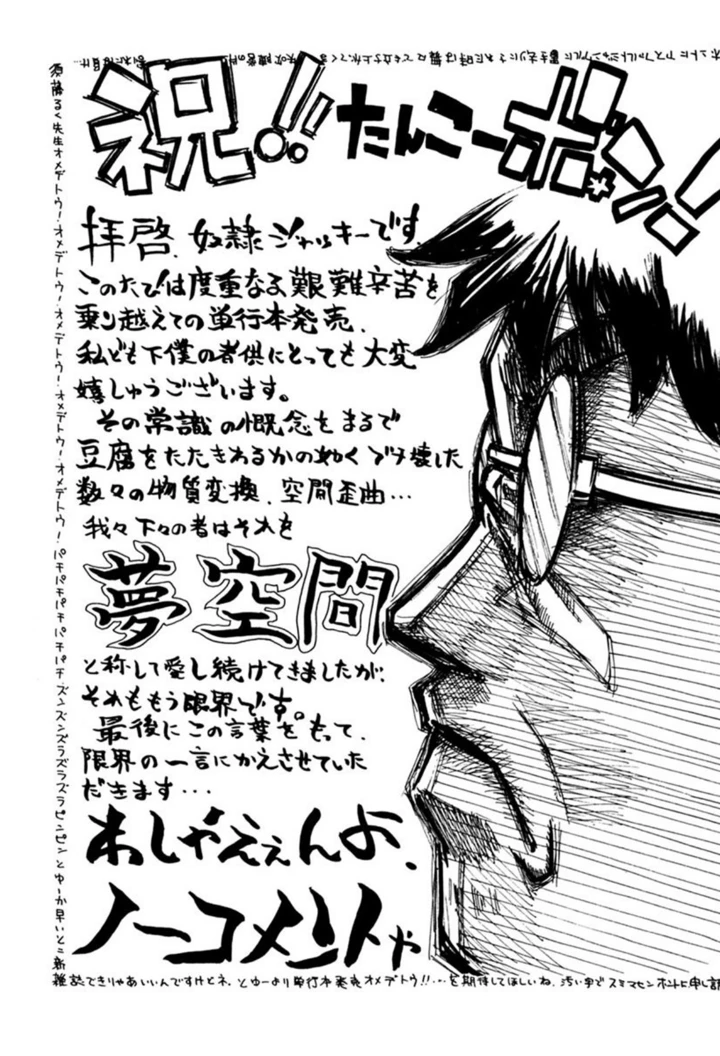 祝!! たんこーボン!
拝啓、奴隷ジャッキーです
このたびは度重なる艱難辛苦を
乗り越えての単行本発売、
私ども下僕の者供にとっても大変
嬉しゅうございます。
その常識の慨念をまるで
豆腐をたたきわるかの如くブチ壊した
数々の物質変換、空間歪曲…
我々下々の者はそれを
夢空間
と称して愛し続けてきましたが、
それももう限界です。
最後にこの言葉をもって、
限界の一言にかえさせていた
だきます…
わしゃええんよ、
ノーコメントや
須藤るく先生オメデトウ!オメデトウ!オメデトウ!オメデトウ!オメデトウ!パチパチパチパチパチ
とゆーか早いとこ新
雑誌できりゃあいいんですけどネ、とゆーより単行本発売オメデトウ!!…を期待してほしいね、汚い字でスミマセンホントに申し訳